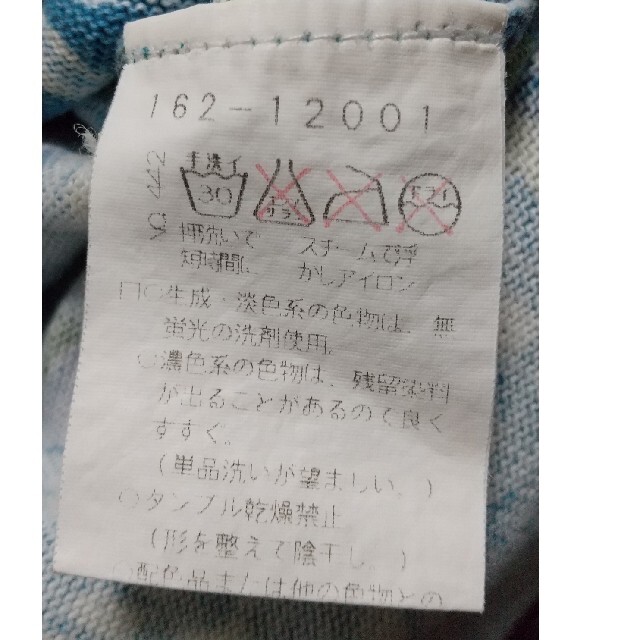 162-12001
手洗イ
30
エンソサラシ
ドライ
押洗いで
短時間に
スチームで浮
かしアイロン
○生成・淡色系の色物は、無
蛍光の洗剤使用。
○濃色系の色物は、残留染料
が出ることがあるので良く
すすぐ。
(単品洗いが望ましい。)
○タンブル乾燥禁止
(形を整えて陰干し。)
○配色品または他の色物との